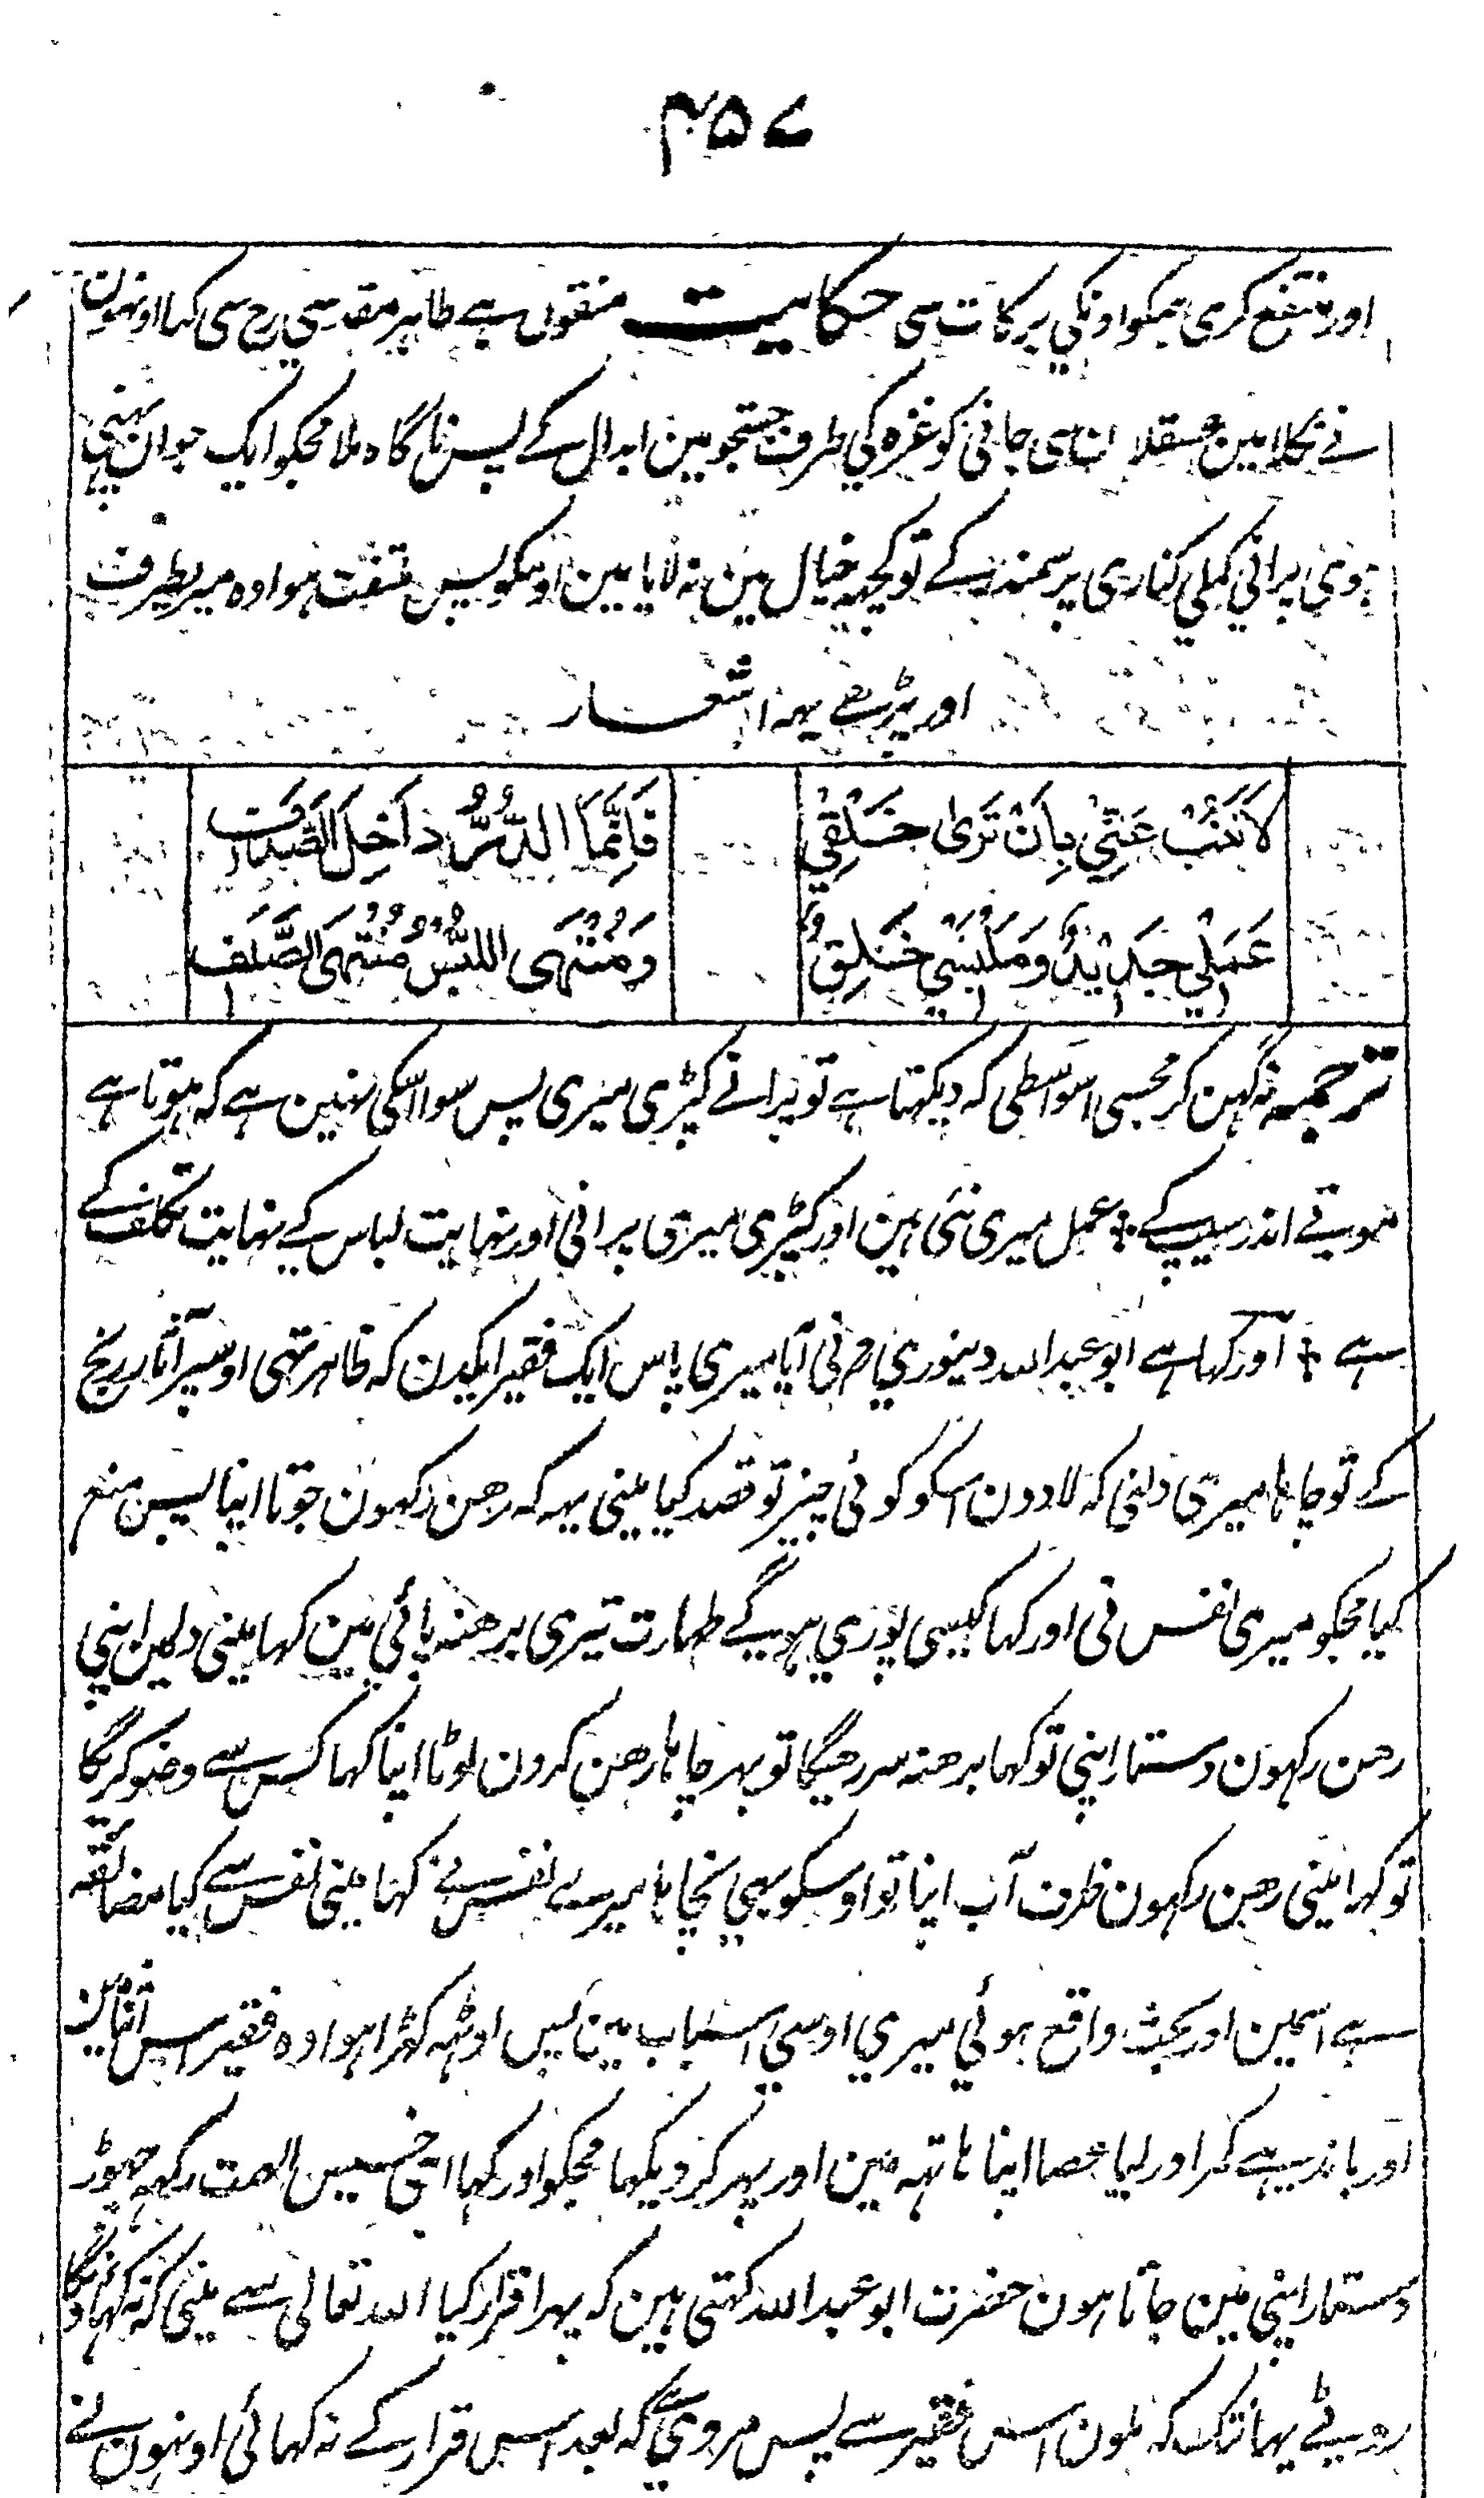 ۴۵۷
اور منتفع کری ہمکو اونکی برکات سی حکایت منقول ہے طاہر مقدسی رح سی کہا اونہون
نے نکلا مین عسقلان سی جانی کو غزہ کی طرف جستجو مین ابدال کے پس ناگاہ ملا مجکو ایک جوان پہنی
ہوئی پرانی کملی کناری پر سمندر کے تو کچہہ خیال مین نہ لایا مین اوسکو پس متفت ہوا وہ میریطرف
اور پڑھے یہہ اشعار
لَا تَنْبُ عَنِّيْ بِاَنْ تَرٰى خَلَقِيْ
فَاِنَّمَا الدُّرُّ دَاخِلَ الصَّدَفِ
عَمَلِيْ جَدِيْدٌ وَمَلْبَسِيْ خَلِقٌ
وَمُنْتَهَى اللُّبْسِ مُنْتَهَى الصَّلَفِ
ترجمہ نہ گہن کر مجسی اسواسطی کہ دیکہتا ہے تو پرانے کپڑی میری پس سوا اسکی نہین ہے کہ ہوتا ہے
موتے اندر سیپ کے ؞ عمل میری نئی ہین اور کپڑی میری پرانی اور نہایت لباس کے نہایت تکلف کے
ہے ؞ اور کہا ہے ابو عبد اللہ دینوری رح نی آیا میری پاس ایک فقیر ایکدن کہ ظاہر تہی اوسپر آثار رنج
کے تو چاہا میری دلنی کہ لا دون اسکو کوئی چیز تو قصد کیا مینی یہہ کہ رھن رکہون جوتا اپنا پس منع
کیا مجکو میری نفس نی اور کہا کیسی پوری ہوگے طہارت تیری برھنہ پائی مین کہا مینی دلمین اپنی
رھن رکہون دستار اپنی تو کہا برھنہ سر رہیگا تو پہر چاہا رھن کرون لوٹا اپنا کہا کس سے وضو کریگا
تو کہا مینی رھن رکہون ظرف آب اپنا تو اوسکو بہی نچاہا میرے نفس نے کہا مینی نفس سے کیا مضائقہ
ہے اسمین اور بحث واقع ہوئی میری اوسی اسباب مین پس اوٹہہ کہڑا ہوا وہ فقیر اس اثنا مین
اور باندہے کمر اور لیا عصا اپنا ہاتہہ مین اور پہر کر دیکہا مجکو اور کہا ای خسیس الہمت رکہہ چہوڑ
دستار اپنی مین جاتا ہون حضرت ابو عبد اللہ کہتی ہین کہ پہر اقرار کیا اللہ تعالی سے مینی کہ نہ کہاونگا
روٹے یہانتک کہ ملون اس فقیر سے پس مروی ہے کہ بعد اس قرار کے نہ کہائی اونہون نے